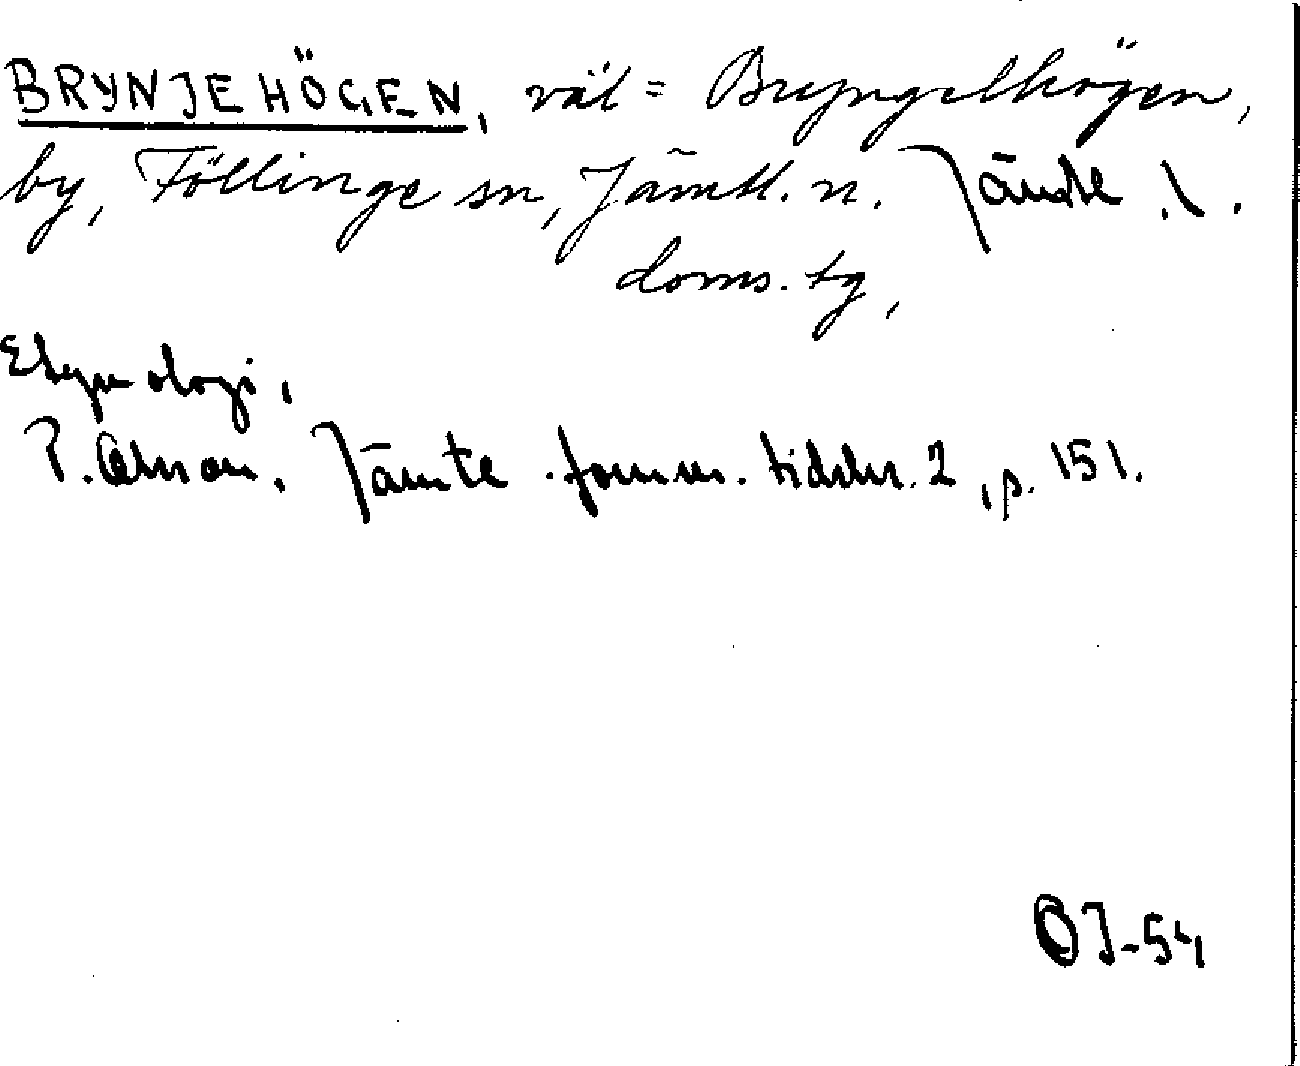 BRYNJEHÖGEN, väl = Bryngelhögen,
by, Föllinge sn, Jämtl. n. Jämtl. l.
doms. tg,
Etymologi,
P. Olsson. Jämte fornm. tidskr. 2, p. 151.
OJ-54